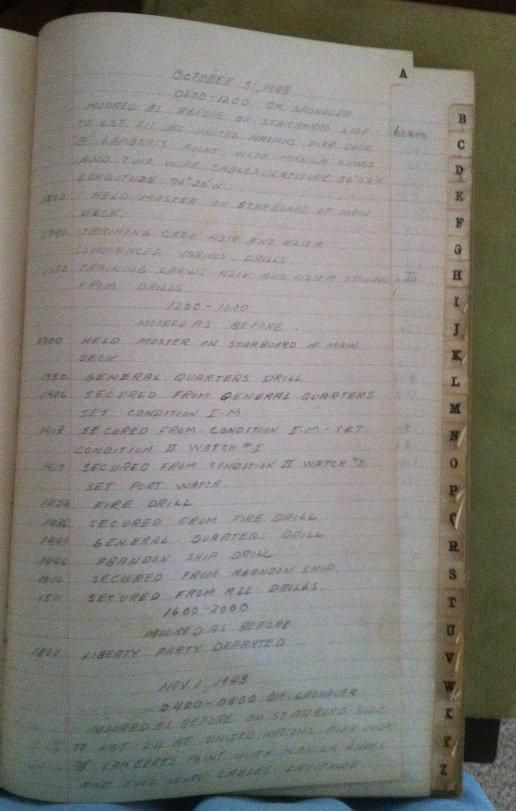 OCTOBER 31, 1943
0800-1200 QM GRONAUER
MOORED AS BEFORE ON STARBOARD SIDE
TO LST 211 AT UNITED NATIONS PIER DOCK
LAMBERTS POINT WITH MANILA LINES
AND TWO WIRE CABLES. LATITUDE
LONGITUDE 76° W.
HELD MUSTER ON STARBOARD OF MAIN
DECK.
TRAINING CREW 4218 AND 4219A
COMMENCED VARIOUS DRILLS
1130 TRAINING CREWS 4218 AND 4219A
FROM DRILLS.
1200-1600
MOORED AS BEFORE.
1300 HELD MUSTER ON STARBOARD OF MAIN
DECK
1350 GENERAL QUARTERS DRILL
1406 SECURED FROM GENERAL QUARTERS
SET CONDITION I-M
1413 SECURED FROM CONDITION I-M - SET
CONDITION II WATCH #1
1417 SECURED FROM CONDITION II WATCH #1
SET PORT WATCH.
1429 FIRE DRILL
1436 SECURED FROM FIRE DRILL
1440 GENERAL QUARTERS DRILL
1446 ABANDON SHIP DRILL
1510 SECURED FROM ABANDON SHIP
1511 SECURED FROM ALL DRILLS.
1600-2000
MOORED AS BEFORE
1800 LIBERTY PARTY DEPARTED
NOV. 1, 1943
0400-0800 QM. GRONAUER
MOORED AS BEFORE ON STARBORD SIDE
TO LST 211 AT UNITED NATIONS PIER DOCK
LAMBERTS POINT WITH MANILA LINES
AND TWO WIRE CABLES. LATITUDE
A
B
C
D
E
F
G
H
I
J
K
L
M
N
O
P
Q
R
S
T
U
V
W
X
Y
Z